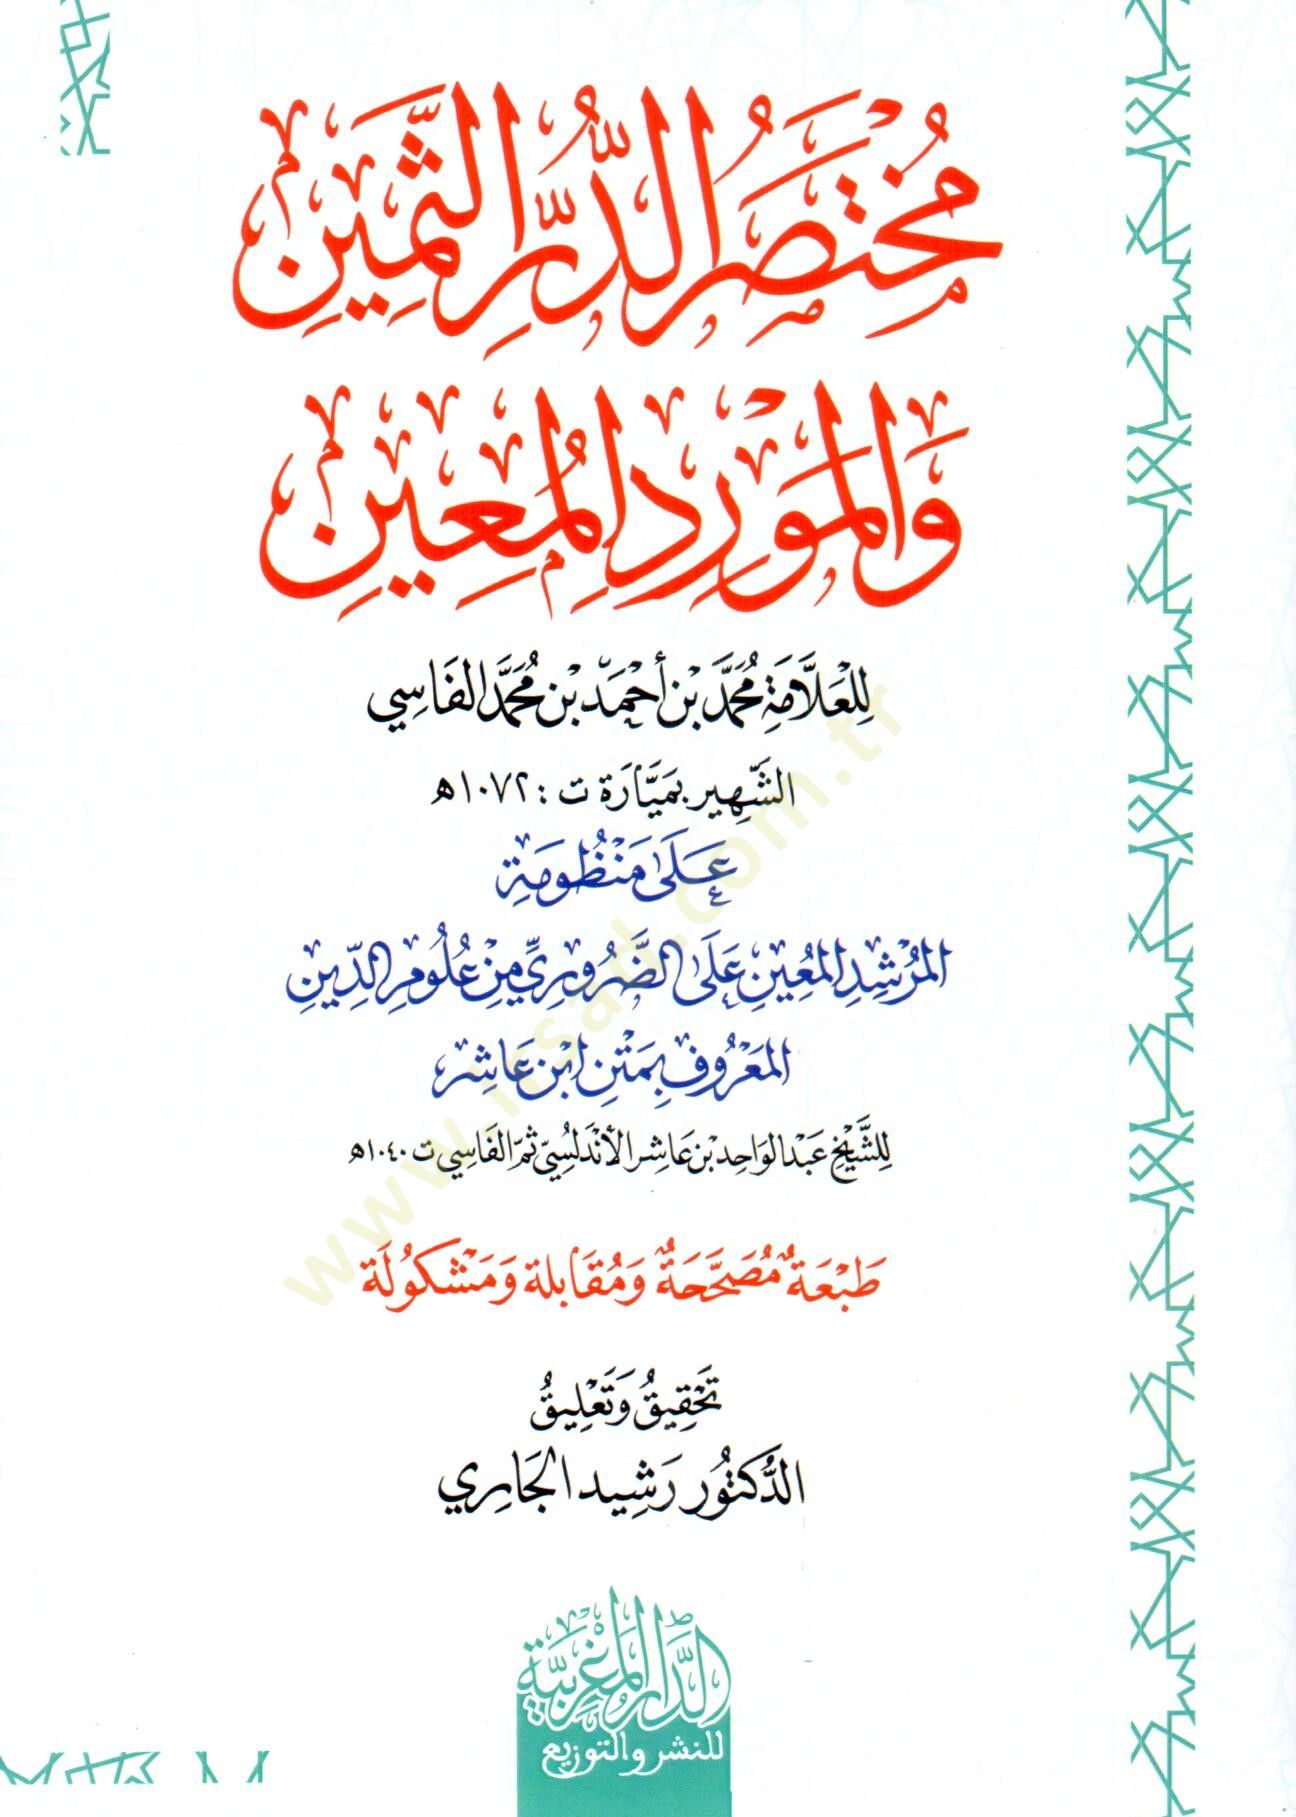 مُخْتَصَرُ الدُّرِّ الثَّمِينِ
وَالْمَوْرِدِ الْمُعِينِ
لِلْعَلَّامَةِ مُحَمَّد بْن أَحْمَد بْن مُحَمَّد الفَاسِي
الشَّهِير بمَيَّارَة ت : ١٠٧٢هـ
عَلَى مَنْظُومَةِ
المُرْشِدِ المُعِينِ عَلَى الضَّرُورِيِّ مِنْ عُلُومِ الدِّينِ
المَعْرُوفِ بِمَتْنِ ابْنِ عَاشِر
لِلشَّيْخِ عَبْد الوَاحِد بْن عَاشِر الأَنْدَلُسِيّ ثمّ الفَاسِي ت ١٠٤٠هـ
طَبْعَةٌ مُصَحَّحَةٌ وَمُقَابلة وَمَشْكُولَة
تَحْقِيقُ وَتَعْلِيقُ
الدُّكتُور رَشِيد الجَارِي
الدَّار المَغْرِبيَّة
للنشر والتوزيع
www.irsad.com.tr